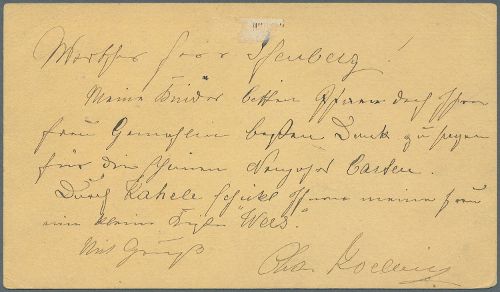 Werther Herr Isenberg!
Meine Kinder bitten Ihnen doch Ihrer
Frau Gemahlin besten Dank zu sagen
für die schönen Neujahrs Carten.
Durch Kahele schickt Ihnen meine Frau
eine kleine "Wels".
Mit Gruß
Chas. Koelling